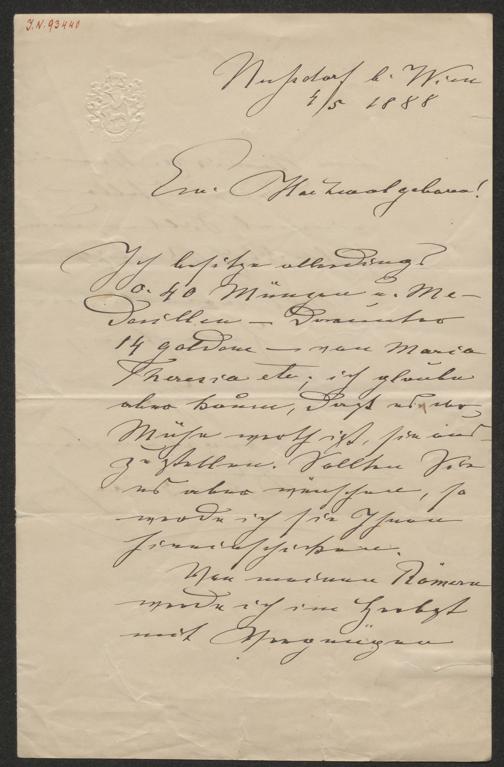 I.N. 93440
Nußdorf b. Wien
4/5 1888
Eur. Hochwolgeboren!
Ich besitze allerdings
30-40 Münzen u. Me-
daillen – darunter
14 goldene – von Maria
Theresia etc; ich glaube
aber kaum, daß es der
Mühe werth ist, sie aus-
zustellen. Sollten Sie
es aber wünschen, so
werde ich sie Ihnen
hineinschicken.
Von meinen Römern
werde ich im Herbst
mit Vergnügen